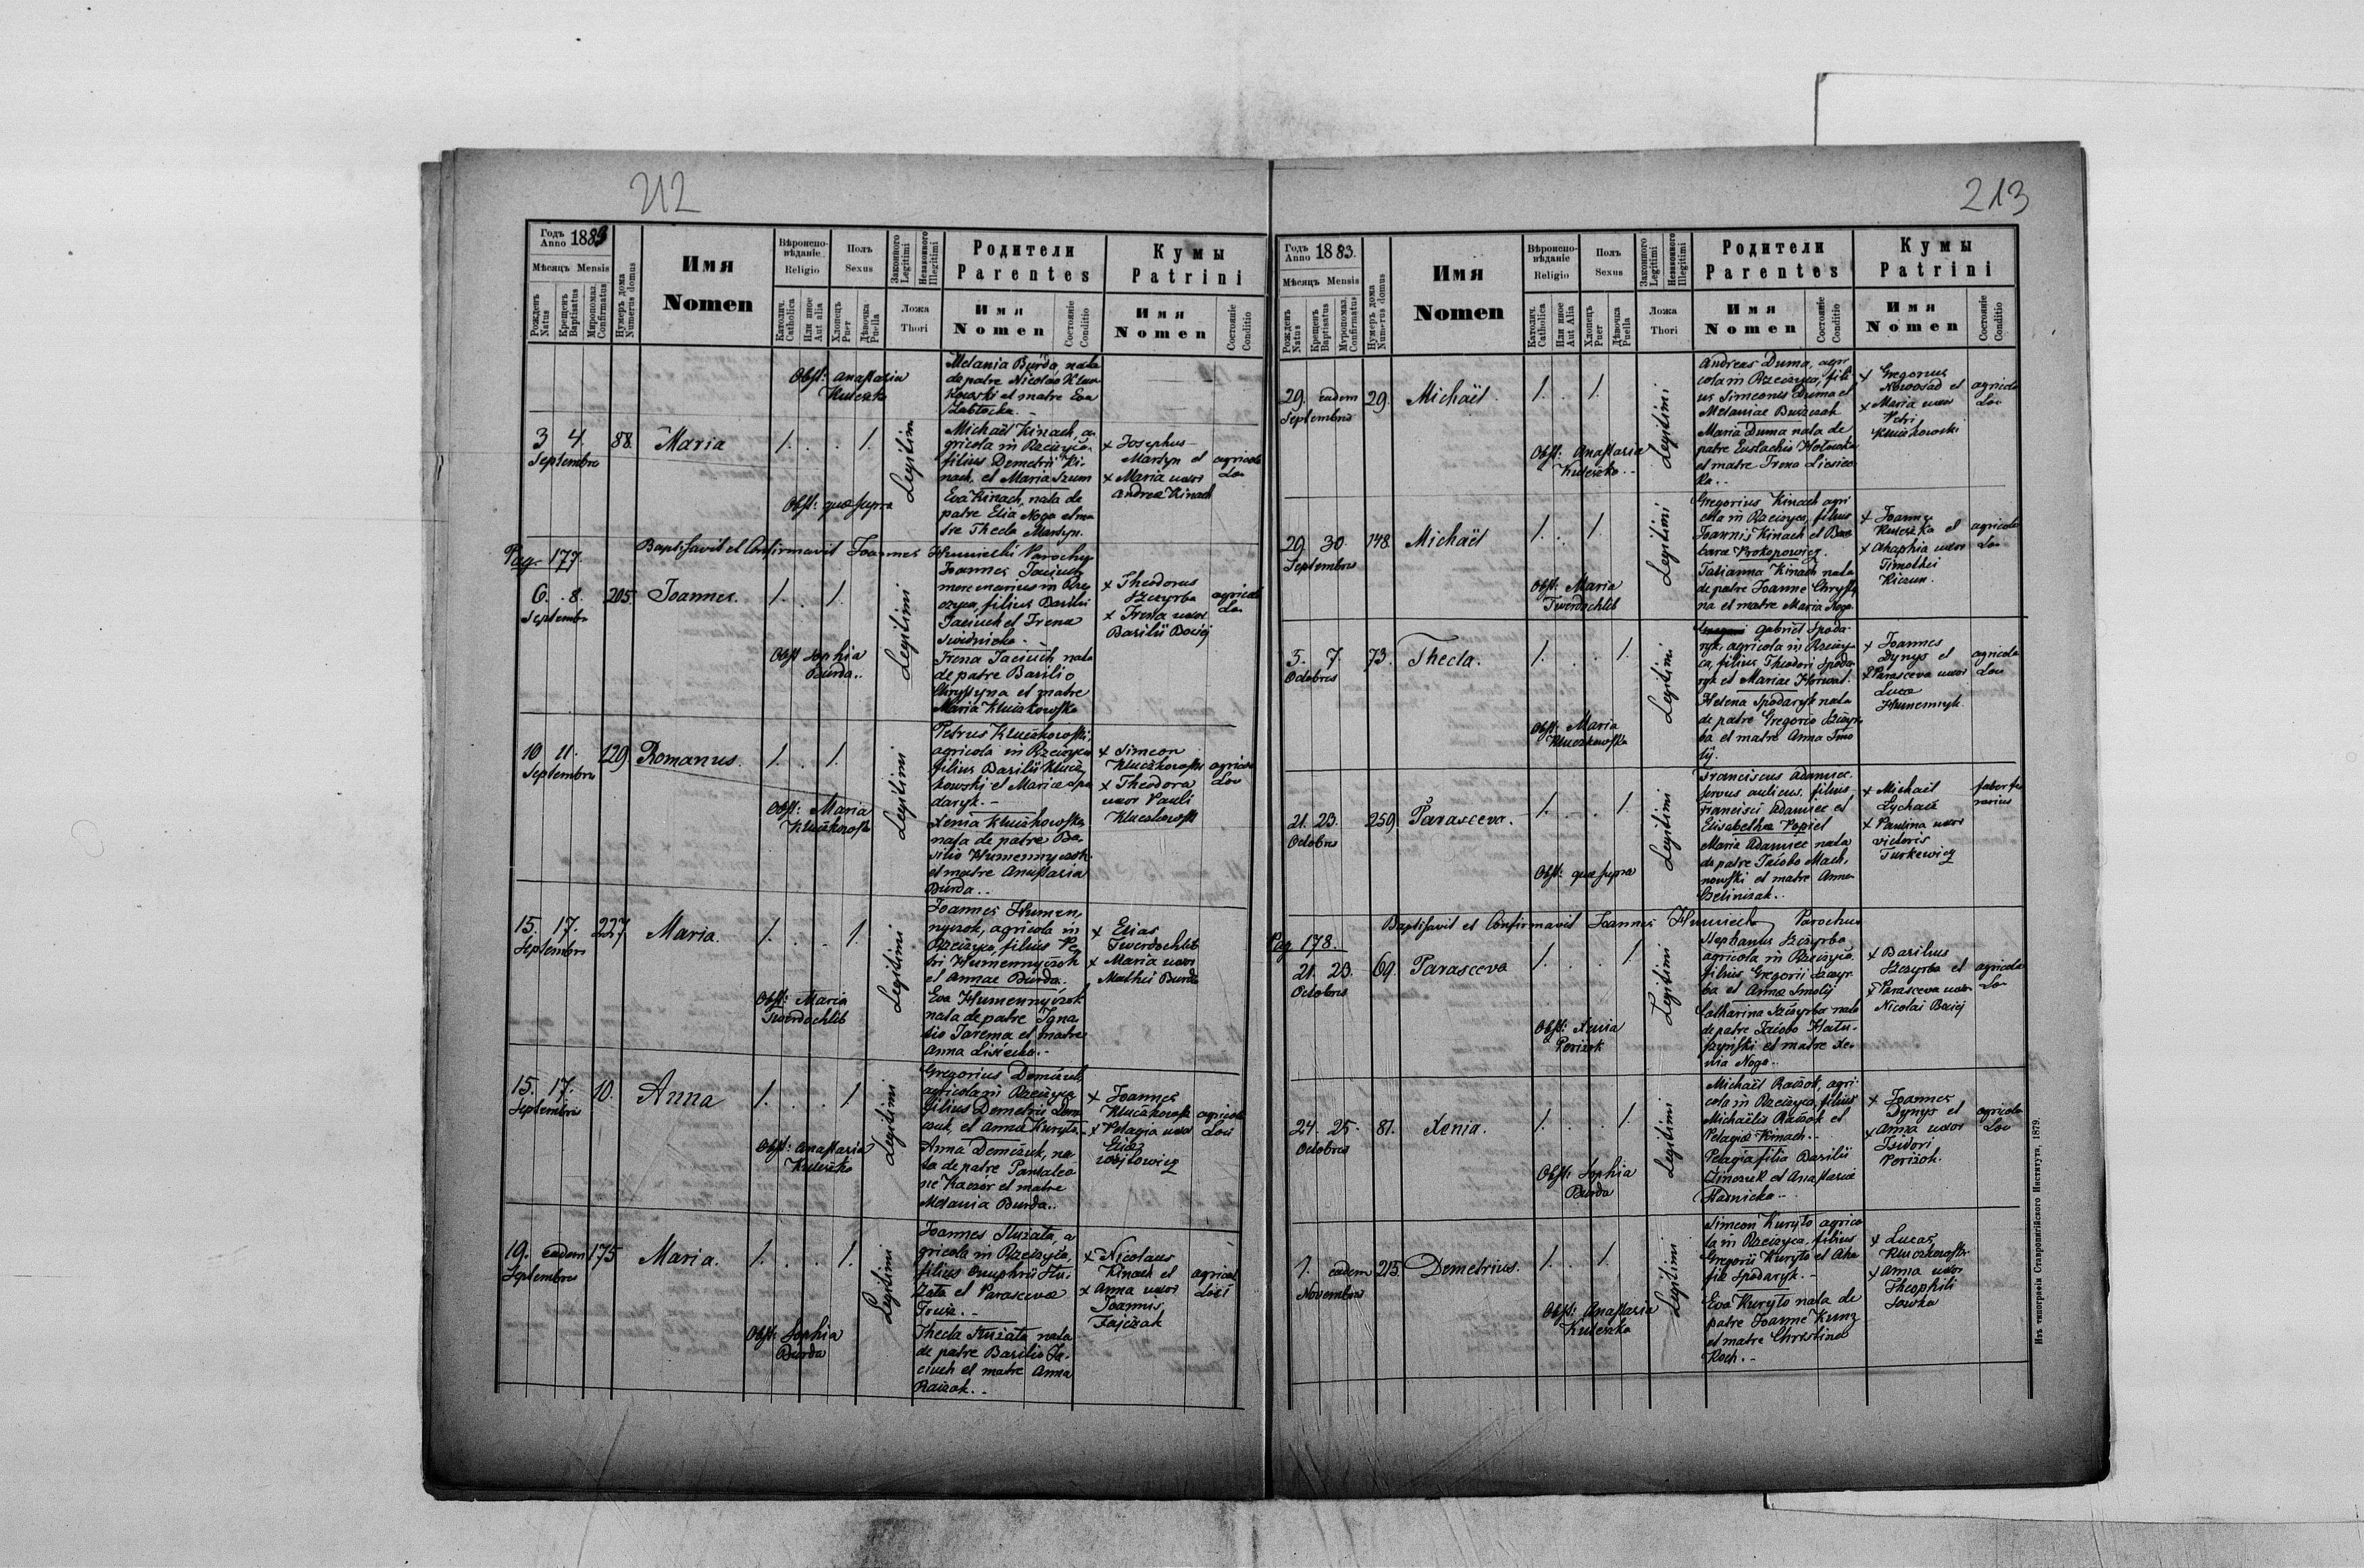 212
Годъ
Anno 1883
Мѣсяцъ Mensis
Рожденъ
Natus
Крещенъ
Baptisatus
Миропомаз.
Confirmatus
Нумеръ дома
Numerus domus
Имя
Nomen
Вѣроиспо-
вѣданіе
Religio
Католич.
Catholica
Или иное
Aut alia
Полъ
Sexus
Хлопецъ
Puer
Дѣвочка
Puella
Законного
Legitimi
Незаконного
Illegitimi
Ложа
Thori
Родители
Parentes
Имя
Nomen
Состояніе
Conditio
Кумы
Patrini
Имя
Nomen
Состояніе
Conditio
Obst: Anastasia
Kuleszka
Melania Burda, nata
de patre Nicolao Klucz
kowski et matre Eva
Zabłocka. -
3 4.
Septembris
88.
Maria
1. . . 1.
Obst: quæ supra
Legitimi
Michaël Kinach, a-
gricola in Rzeczyca
filius Demetrii Ki-
nach, et Maria Szum
Eva Kinach, nata de
patre Elia Noga et ma
tre Thecla Martyn.
+ Josephus
Martyn et
+ Maria uxor
Andreæ Kinach
agricola
Loci
Baptisavit et Confirmavit Joannes Humiecki Parochus
Pag. 177.
6. 8.
Septembris
205.
Joannes.
1. . 1.
Obst Sophia
Burda..
Legitimi
Joannes Jaciuch
mercenarius in Rze
czyca, filius Basilii
Jaciuch et Irena
Swidnicka. -
Irena Jaciuch nata
de patre Basilio
Chrystyna et matre
Maria Kluczkowska
+ Theodorus
Szczyrba
+ Irena uxor
Basilii Bociej
agricola
Loci
10. 11.
Septembris
129.
Romanus.
1. . 1.
Obst: Maria
Kluczkowska
Legitimi
Petrus Kluczkowski,
agricola in Rzeczyca
filius Basilii Klucz
kowski et Mariæ Spo
daryk. -
Xenia Kluczkowska
nata de patre Ba-
silio Humennyczok
et matre Anastasia
Burda..
+ Simeon
Kluczkowski
+ Theodora
uxor Pauli
Kluczkowski
agricola
Loci
15. 17.
Septembris
227.
Maria.
1. . . 1.
Obst: Maria
Twerdochlib
Legitimi
Joannes Humen
nyczok, agricola in
Rzeczyca, filius Pe
tri Humennyczok
et Annae Burda..
Eva Humennyczok
nata de patre Igna
tio Jarema et matre
Anna Lisiecka. -
+ Elias
Twerdochlib
+ Maria uxor
Mathei Burda
15. 17.
Septembris
10.
Anna
1. . . 1.
Obst: Anastasia
Kuleszka
Legitimi
Gregorius Demczuk
agricola in Rzeczyca
filius Demetrii Dem
czuk, et Anna Kuryło.
Anna Demczuk, na
ta de patre Pantaleo
ne Kaczor et matre
Melania Burda..
+ Joannes
Kluczkowski
+ Pelagia uxor
Eliæ
Wojtowicz
agricola
Loci
19. eadem
Septembris
175
Maria.
1. . . 1.
Obst: Sophia
Burda
Legitimi
filius Onuphrii
et Parascevæ
de patre Basilio Ja-
ciuch et matre Anna
Raczok..
+ Nicolaus
Kinach et
+ Anna uxor
Joannis
Fajczak
agricola
Loci
213
Годъ
Anno 1883.
Мѣсяцъ Mensis
Рожденъ
Natus
Крещенъ
Baptisatus
Муропомаз.
Confirmatus
Нумеръ дома
Numerus domus
Имя
Nomen
Вѣроиспо-
вѣданіе
Religio
Католич.
Catholica
Или иное
Aut Alia
Полъ
Sexus
Хлопецъ
Puer
Дѣвочка
Puella
Законного
Legitimi
Незаконного
Illegitimi
Ложа
Thori
Родители
Parentes
Имя
Nomen
Состояніе
Conditio
Кумы
Patrini
Имя
Nomen
Состояніе
Conditio
29. eadem
Septembris
29.
Michaël.
1. . 1.
Obst: Anastasia
Kuleszka. -
Legitimi
Andreas Duma, agri
cola in Rzeczyca, fili-
us Simeonis Duma et
Melaniae Buszczak
Maria Duma nata de
patre Eustachio
et matre Irena Lisiec
ka..
+ Gregorius
Nowosad et
+ Maria uxor
Petri
Kluczkowski
agricola
Loci
29. 30.
Septembris
148.
Michaël
1. . 1.
Obst: Maria
Twerdochlib
Legitimi
Gregorius Kinach agri
cola in Rzeczyca, filius
Joannis Kinach et Bar
baræ Prokopowicz.
Tatianna Kinach nata
de patre Joanne Chrysty
na et matre Maria Noga.
+ Joannes
Kuleszka et
+ Ahaphia uxor
Timothei
Kiczun.
agricola
Loci
5. 7.
Octobris
73.
Thecla.
1. . . 1.
Obst: Maria
Kluczkowska
Legitimi
Gabriel Spoda-
ryk, agricola in Rzeczy-
ca, filius Theodori Spoda
ryk et Mariae Horwat.
Helena Spodaryk nata
de patre Gregorio Szczyr
ba et matre Anna Smo
lij.
+ Joannes
Dynys et
+ Parasceva uxor
Lucæ
Humennyk
agricola
Loci
21. 23.
Octobris
259
Parasceva.
1. . . 1.
Obst: quæ supra
Legitimi
Franciscus Adamiec.
servus aulicus, filius
Francisci Adamiec et
Elisabethæ Popiel
Maria Adamiec nata
de patre Jacobo Mach,
nowski et matre Anna
+ Michaël
+ Paulina uxor
Victoris
Turkewicz
faber fer
rarius
Baptisavit et Confirmavit Joannes Humiecki Parochus
Pag 178.
21. 23.
Octobris
69.
Parasceva
1. . . 1.
Obst: Xenia
Perizok
Legitimi
Stephanus Szczyrba
agricola in Rzeczyca
filius Gregorii Szczyr-
ba et Annæ Smolij
Catharina Szczyrba nata
de patre Jacobo
et matre Xe-
nia Noga..
+ Basilius
Szczyrba et
+ Parasceva uxor
Nicolai Bociej
agricola
Loci
24. 25.
Octobris
81.
Xenia.
1. . . 1.
Obst: Sophia
Burda
Legitimi
Michaël Raczok, agri-
cola in Rzeczyca, filius
Michaëlis Raczok et
Pelagiæ Kinach..
Pelagia filia Basilii
et Anastasiæ
+ Joannes
Dynys et
+ Anna uxor
Isidori
Perizok.
agricola
Loci
1. eadem
Novembris
215.
Demetrius.
1. . 1.
Obst: Anastasia
Kuleszka
Legitimi
Simeon Kuryło agrico
la in Rzeczyca, filius
Gregorii Kuryło et Aha
fiæ Spodaryk. -
Eva Kuryło nata de
patre Joanne Kunz
et matre Christina
Koch. -
+ Lucas
Kluczkowski
+ Anna uxor
Theophili
Sawka
Изъ типографіи Ставропигійского Института, 1879.